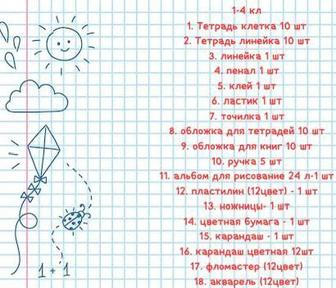 1-4 кл
1. Тетрадь клетка 10 шт
2. Тетрадь линейка 10 шт
3. линейка 1 шт
4. пенал 1 шт
5. клей 1 шт
6. ластик 1 шт
7. точилка 1 шт
8. обложка для тетрадей 10 шт
9. обложка для книг 10 шт
10. ручка 5 шт
11. альбом для рисование 24 л-1 шт
12. пластилин (12цвет) - 1 шт
13. ножницы- 1 шт
14. цветная бумага - 1 шт
15. карандаш - 1 шт
16. карандаш цветная 12шт
17. фломастер (12цвет)
18. акварель (12цвет)
1 + 1